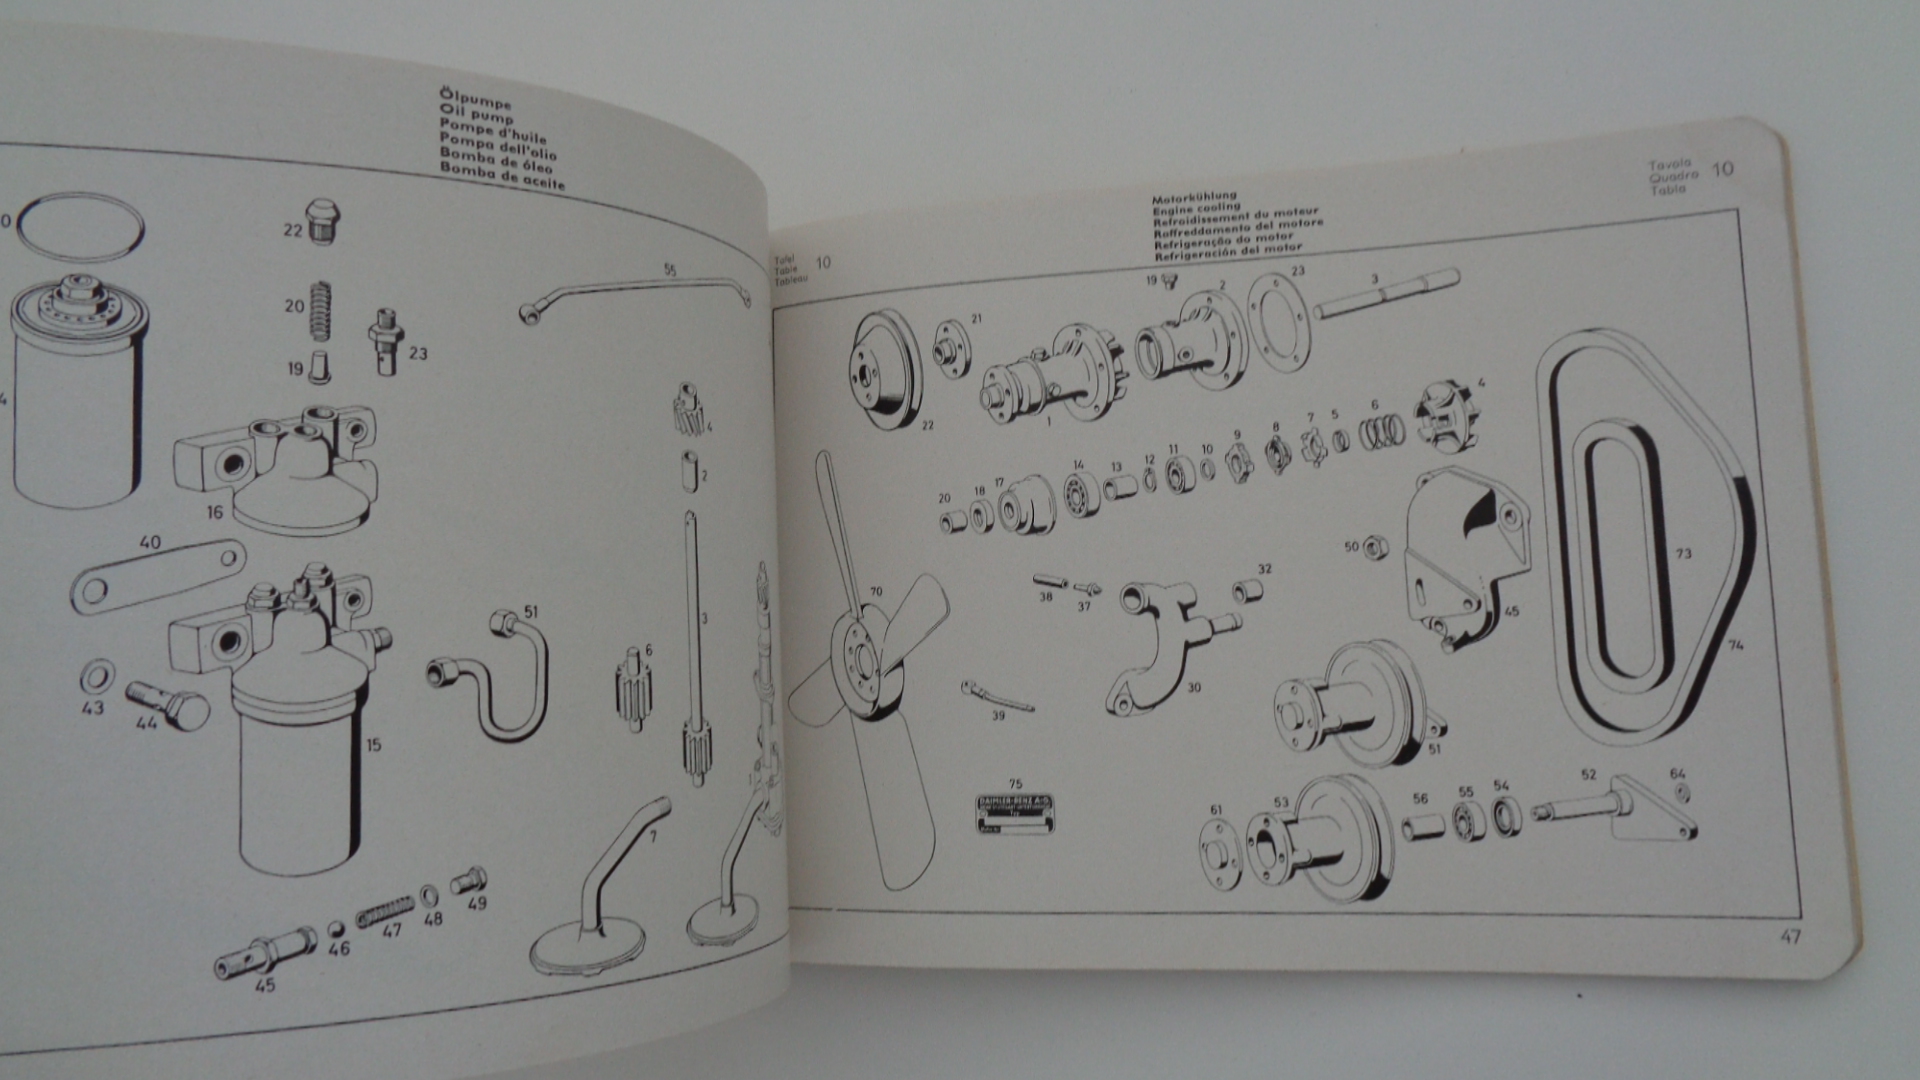 Ölpumpe
Oil pump
Pompe d'huile
Pompa dell'olio
Bomba de óleo
Bomba de aceite
0
22
20
19
23
4
16
40
43
44
15
51
55
4
2
3
6
7
1
45
46
47
48
49
Tafel
Table
Tableau
10
Motorkühlung
Engine cooling
Refroidissement du moteur
Raffreddamento del motore
Refrigeração do motor
Refrigeración del motor
Tavola
Quadro
Tabla
10
19
2
23
3
21
22
1
4
6
5
7
8
9
10
11
12
13
14
17
18
20
50
45
73
74
70
38
37
32
30
39
51
75
DAIMLER-BENZ A.G.
61
53
56
55
54
52
64
47